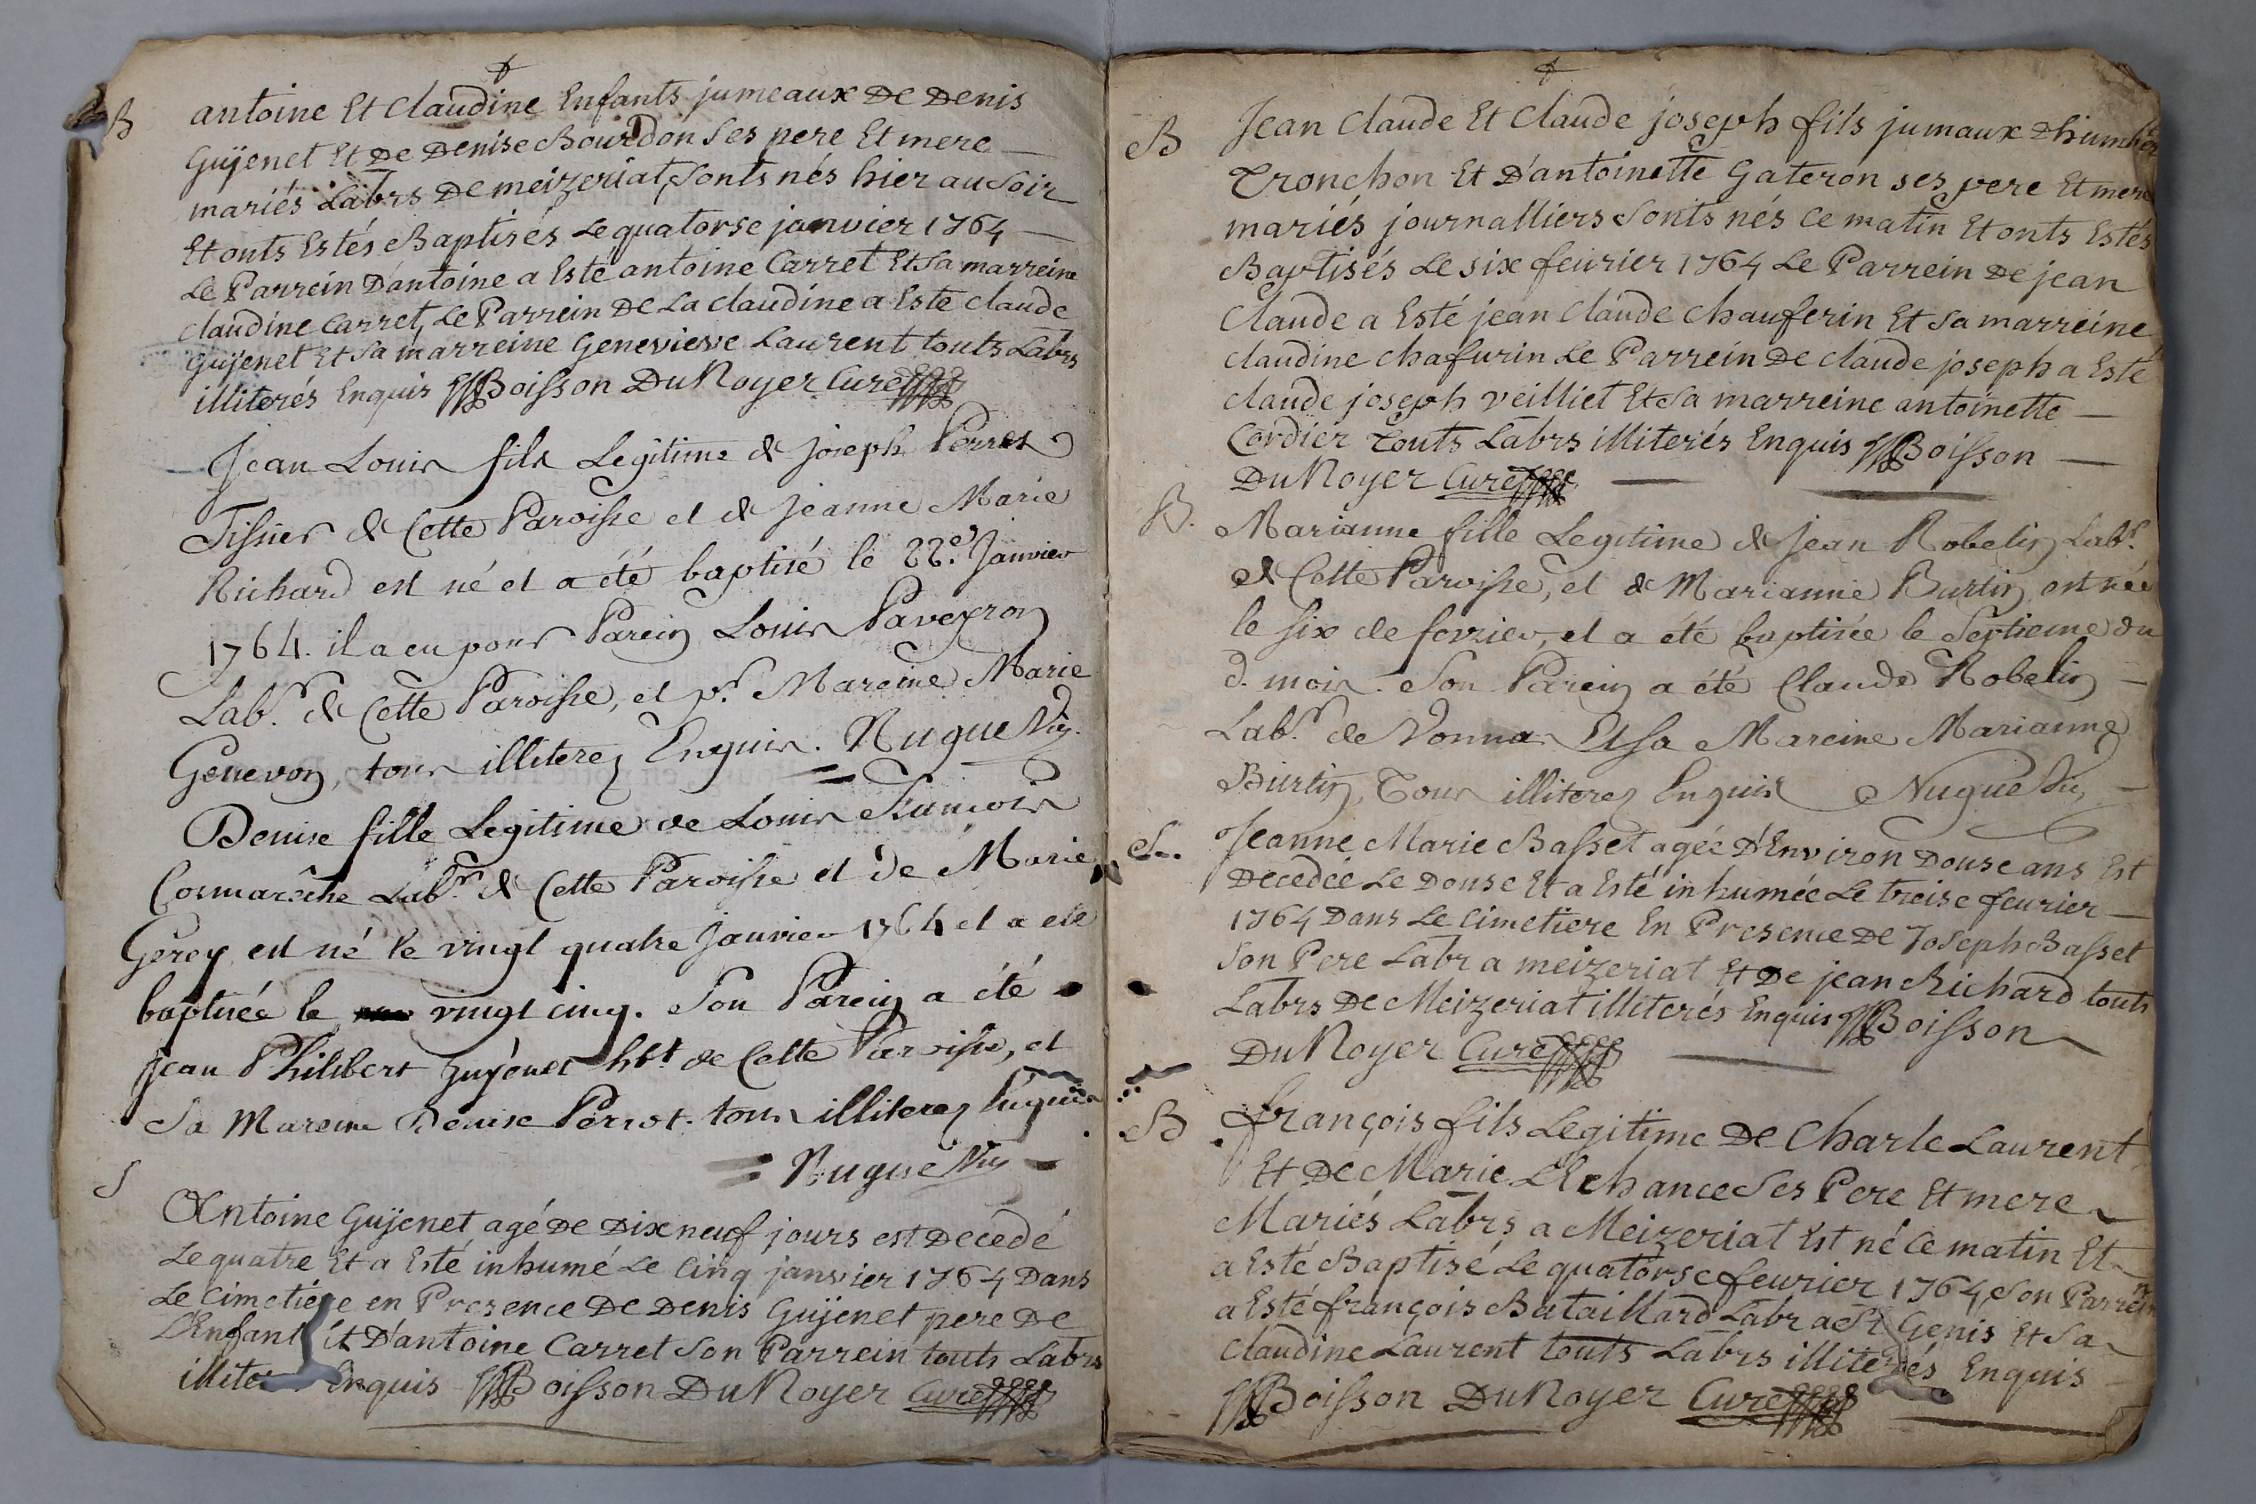 B
antoine Et Claudine Enfants jumeaux De Denis
Guÿenet Et De Denise Bourdon Ses pere Et mere
mariés Labrs De meizeriat, Sonts nés hier au Soir
Et onts Estés Baptisés Le quatorse janvier 1764
Le Parrein D'antoine a Esté antoine Carret Et Sa marreine
claudine Carret, Le Parrein De La claudine a Este claude
Guÿenet Et Sa marreine Genevieve Laurent touts Labrs
illiterés Enquis Boisson DuNoyer Curé
Jean Louis fils Legitime de joseph Perret
Tissier de Cette Paroisse et de Jeanne Marie
Richard est né et a été baptisé le 22e. Janvier
1764. il a eu pour Parein Louis Paveyron
Labr. de Cette Paroisse, et pr. Mareine Marie
Genevon, tous illiterez Enquis. Nugue Vic.
Denise fille Legitime de Louis
Labr. de Cette Paroisse et de Marie
Gerey est né le vingt quatre Janvier 1764 et a été
baptisée le vingt cinq. Son Parein a été
Jean Philibert Guÿenet hbt. de Cette Paroisse, et
Sa Mareine Denise Perrot. tous illiterez Enquis
Nugue Vic
S
Antoine Guÿenet agé De Dix neuf jours est Decedé
Le quatre Et a Esté inhumé Le Cinq janvier 1764 Dans
Le Cimetiére en Presence De Denis Guÿenet pere De
L'Enfant et D'antoine Carret Son Parrein touts Labrs
Enquis Boisson DuNoyer Curé
B
Jean Claude Et Claude joseph fils jumaux
Tronchon Et D'antoinette Gateron ses pere Et mere
mariés journalliers Sonts nés Ce matin Et onts Estés
Baptisés Le six feurier 1764 Le Parrein De jean
Claude a Esté jean Claude Chauferin Et Sa marreine
claudine chafurin Le Parrein De claude joseph a Este
claude joseph veilliet Et Sa marreine antoinette
Cordier touts Labrs illiterés Enquis Boisson
DuNoyer Curé
B.
Marianne fille Legitime de Jean Robelin Labr.
de Cette Paroisse, et de Marianne Burtin, est née
le six de fevrier, et a été baptisée le Septieme du
d. mois. Son Parein a été Claude Robelin
Labr. de Vonnas Et Sa Mareine Marianne
Burtin, Tous illiterez Enquis Nugue Vic.
S.
Jeanne Marie Basset agée D'Environ Douse ans Est
Decedée Le Douse Et a Esté inhumée Le treise feurier
1764 Dans Le Cimetiere En Presence De Joseph Basset
Son Pere Labr a meizeriat Et De jean Richard touts
Labrs De Meizeriat illiterés Enquis Boisson
DuNoyer Curé
B
françois fils Legitime De Charle Laurent
Et De Marie Lechance Ses Pere Et mere
Mariés Labrs a Meizeriat Est né Ce matin Et
a Esté Baptisé Le quatorse feurier 1764 Son Parrein
a Esté françois Bataillard Labr a St Genis Et Sa
Claudine Laurent touts Labrs illiterés Enquis
Boisson DuNoyer Curé